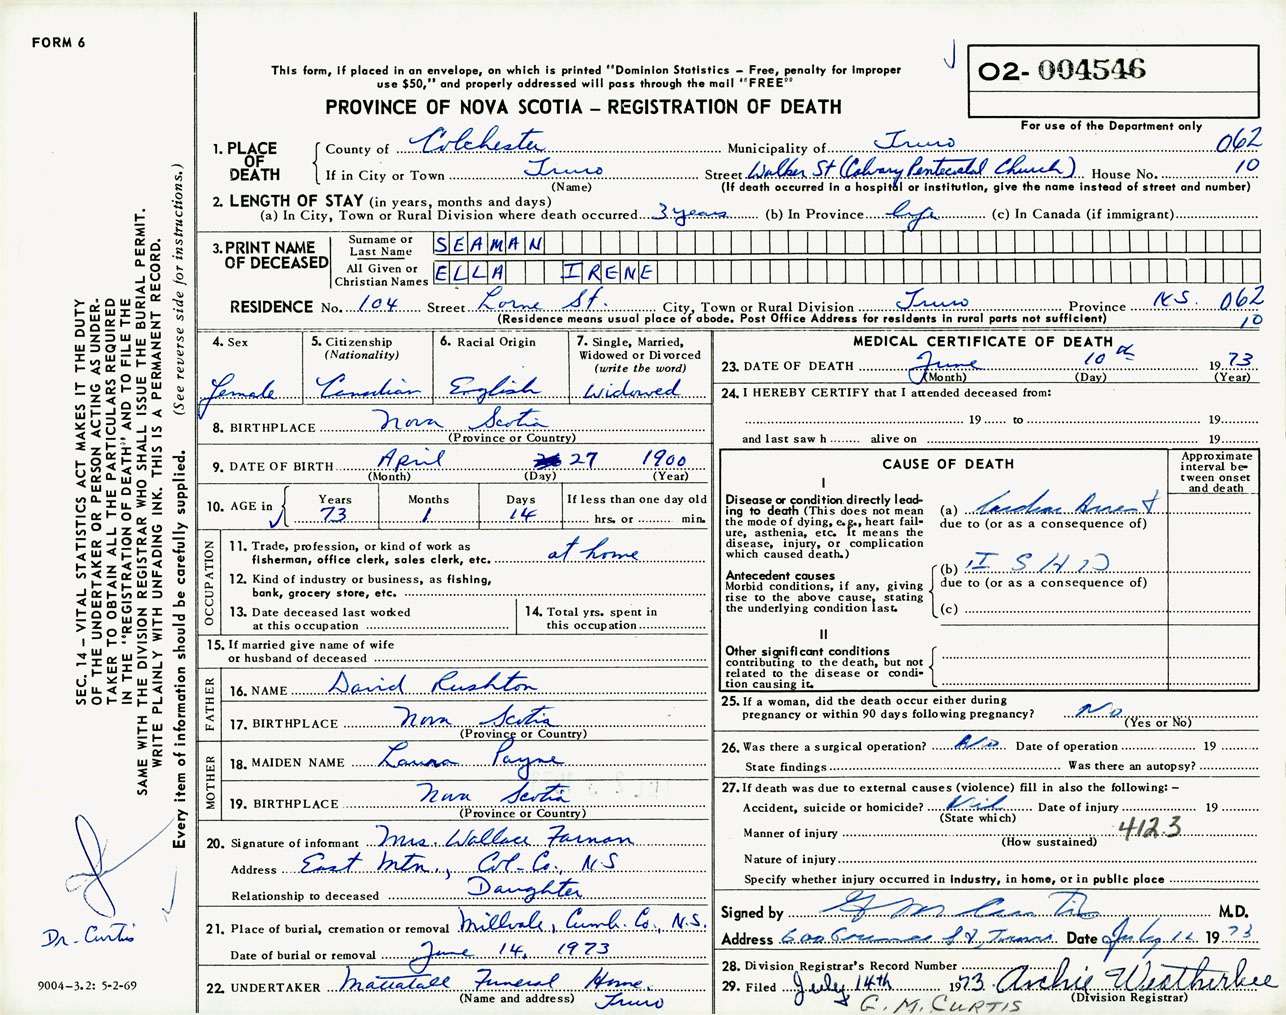 FORM 6
This form, if placed in an envelope, on which is printed "Dominion Statistics – Free, penalty for improper
use $50," and properly addressed will pass through the mail "FREE"
PROVINCE OF NOVA SCOTIA – REGISTRATION OF DEATH
O2- 004546
For use of the Department only
SEC. 14 – VITAL STATISTICS ACT MAKES IT THE DUTY
OF THE UNDERTAKER OR PERSON ACTING AS UNDER-
TAKER TO OBTAIN ALL THE PARTICULARS REQUIRED
IN THE "REGISTRATION OF DEATH" AND TO FILE THE
SAME WITH THE DIVISION REGISTRAR WHO SHALL ISSUE THE BURIAL PERMIT.
WRITE PLAINLY WITH UNFADING INK. THIS IS A PERMANENT RECORD.
Every item of information should be carefully supplied. (See reverse side for instructions.)
1. PLACE OF DEATH
County of Colchester Municipality of Truro 062
If in City or Town Truro Street Walker St (Calvary Pentecostal Church) House No. 10
(Name) (If death occurred in a hospital or institution, give the name instead of street and number)
2. LENGTH OF STAY (in years, months and days)
(a) In City, Town or Rural Division where death occurred 3 years (b) In Province life (c) In Canada (if immigrant)
3. PRINT NAME OF DECEASED
Surname or Last Name SEAMAN
All Given or Christian Names ELLA IRENE
RESIDENCE No. 104 Street Lorne St. City, Town or Rural Division Truro Province N.S. 062
(Residence means usual place of abode. Post Office Address for residents in rural parts not sufficient) 10
4. Sex Female
5. Citizenship (Nationality) Canadian
6. Racial Origin English
7. Single, Married, Widowed or Divorced (write the word) Widowed
8. BIRTHPLACE Nova Scotia
(Province or Country)
9. DATE OF BIRTH April 27 1900
(Month) (Day) (Year)
10. AGE in Years 73 Months 1 Days 14 If less than one day old hrs. or min.
OCCUPATION
11. Trade, profession, or kind of work as
fisherman, office clerk, sales clerk, etc. at home
12. Kind of industry or business, as fishing,
bank, grocery store, etc.
13. Date deceased last worked
at this occupation
14. Total yrs. spent in
this occupation
15. If married give name of wife
or husband of deceased
FATHER
16. NAME David Rushton
17. BIRTHPLACE Nova Scotia
(Province or Country)
MOTHER
18. MAIDEN NAME Laura Payne
19. BIRTHPLACE Nova Scotia
(Province or Country)
20. Signature of informant Mrs. Wallace Farnan
Address East Mtn., Col. Co., N.S
Relationship to deceased Daughter
21. Place of burial, cremation or removal Millvale, Cumb. Co., N.S.
Date of burial or removal June 14, 1973
22. UNDERTAKER Mattatall Funeral Home,
(Name and address) Truro
MEDICAL CERTIFICATE OF DEATH
23. DATE OF DEATH June 10th 1973
(Month) (Day) (Year)
24. I HEREBY CERTIFY that I attended deceased from:
19 to 19
and last saw h alive on 19
CAUSE OF DEATH
Approximate interval between onset and death
I
Disease or condition directly lead-
ing to death (This does not mean
the mode of dying, e.g., heart fail-
ure, asthenia, etc. It means the
disease, injury, or complication
which caused death.)
(a) Cardiac Arrest
due to (or as a consequence of)
Antecedent causes
Morbid conditions, if any, giving
rise to the above cause, stating
the underlying condition last.
(b) I S H D
due to (or as a consequence of)
(c)
II
Other significant conditions
contributing to the death, but not
related to the disease or condi-
tion causing it.
25. If a woman, did the death occur either during
pregnancy or within 90 days following pregnancy? No
(Yes or No)
26. Was there a surgical operation? No Date of operation 19
State findings Was there an autopsy?
27. If death was due to external causes (violence) fill in also the following: –
Accident, suicide or homicide? Nil Date of injury 19
(State which)
4123
Manner of injury
(How sustained)
Nature of injury
Specify whether injury occurred in industry, in home, or in public place
Signed by G M Curtis M.D.
Address 600 Prince St, Truro Date July 12 1973
28. Division Registrar's Record Number
29. Filed July 14th 1973. Archie Weatherbee
(Division Registrar)
G. M. CURTIS
Dr. Curtis
9004-3.2: 5-2-69